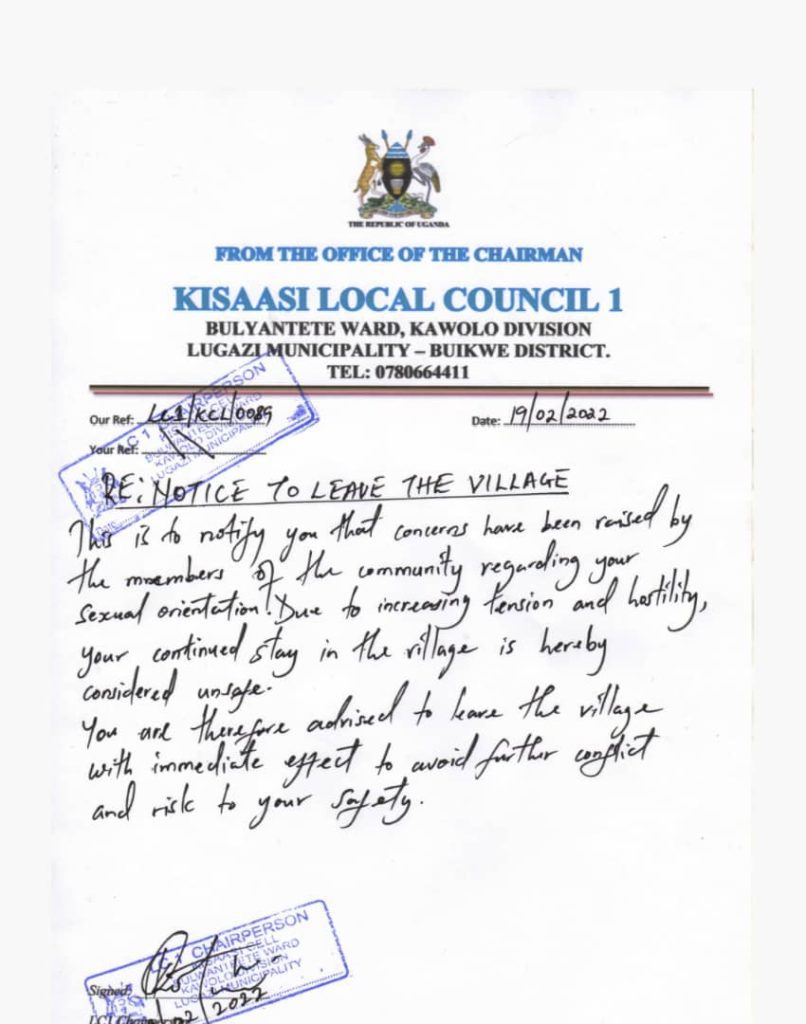 THE REPUBLIC OF UGANDA
FROM THE OFFICE OF THE CHAIRMAN
KISAASI LOCAL COUNCIL 1
BULYANTETE WARD, KAWOLO DIVISION
LUGAZI MUNICIPALITY – BUIKWE DISTRICT.
TEL: 0780664411
Our Ref: LC1/KCL/0089
Date: 19/02/2022
Your Ref:
LC 1 CHAIRPERSON
KAWOLO DIVISION
LUGAZI MUNICIPALITY
RE: NOTICE TO LEAVE THE VILLAGE
This is to notify you that concerns have been raised by
the members of the community regarding your
sexual orientation. Due to increasing tension and hostility,
your continued stay in the village is hereby
considered unsafe.
You are therefore advised to leave the village
with immediate effect to avoid further conflict
and risk to your safety.
LC 1 CHAIRPERSON
BULYANTETE WARD
KAWOLO DIVISION
LUGAZI MUNICIPALITY
Signed:
/02/2022
LCI